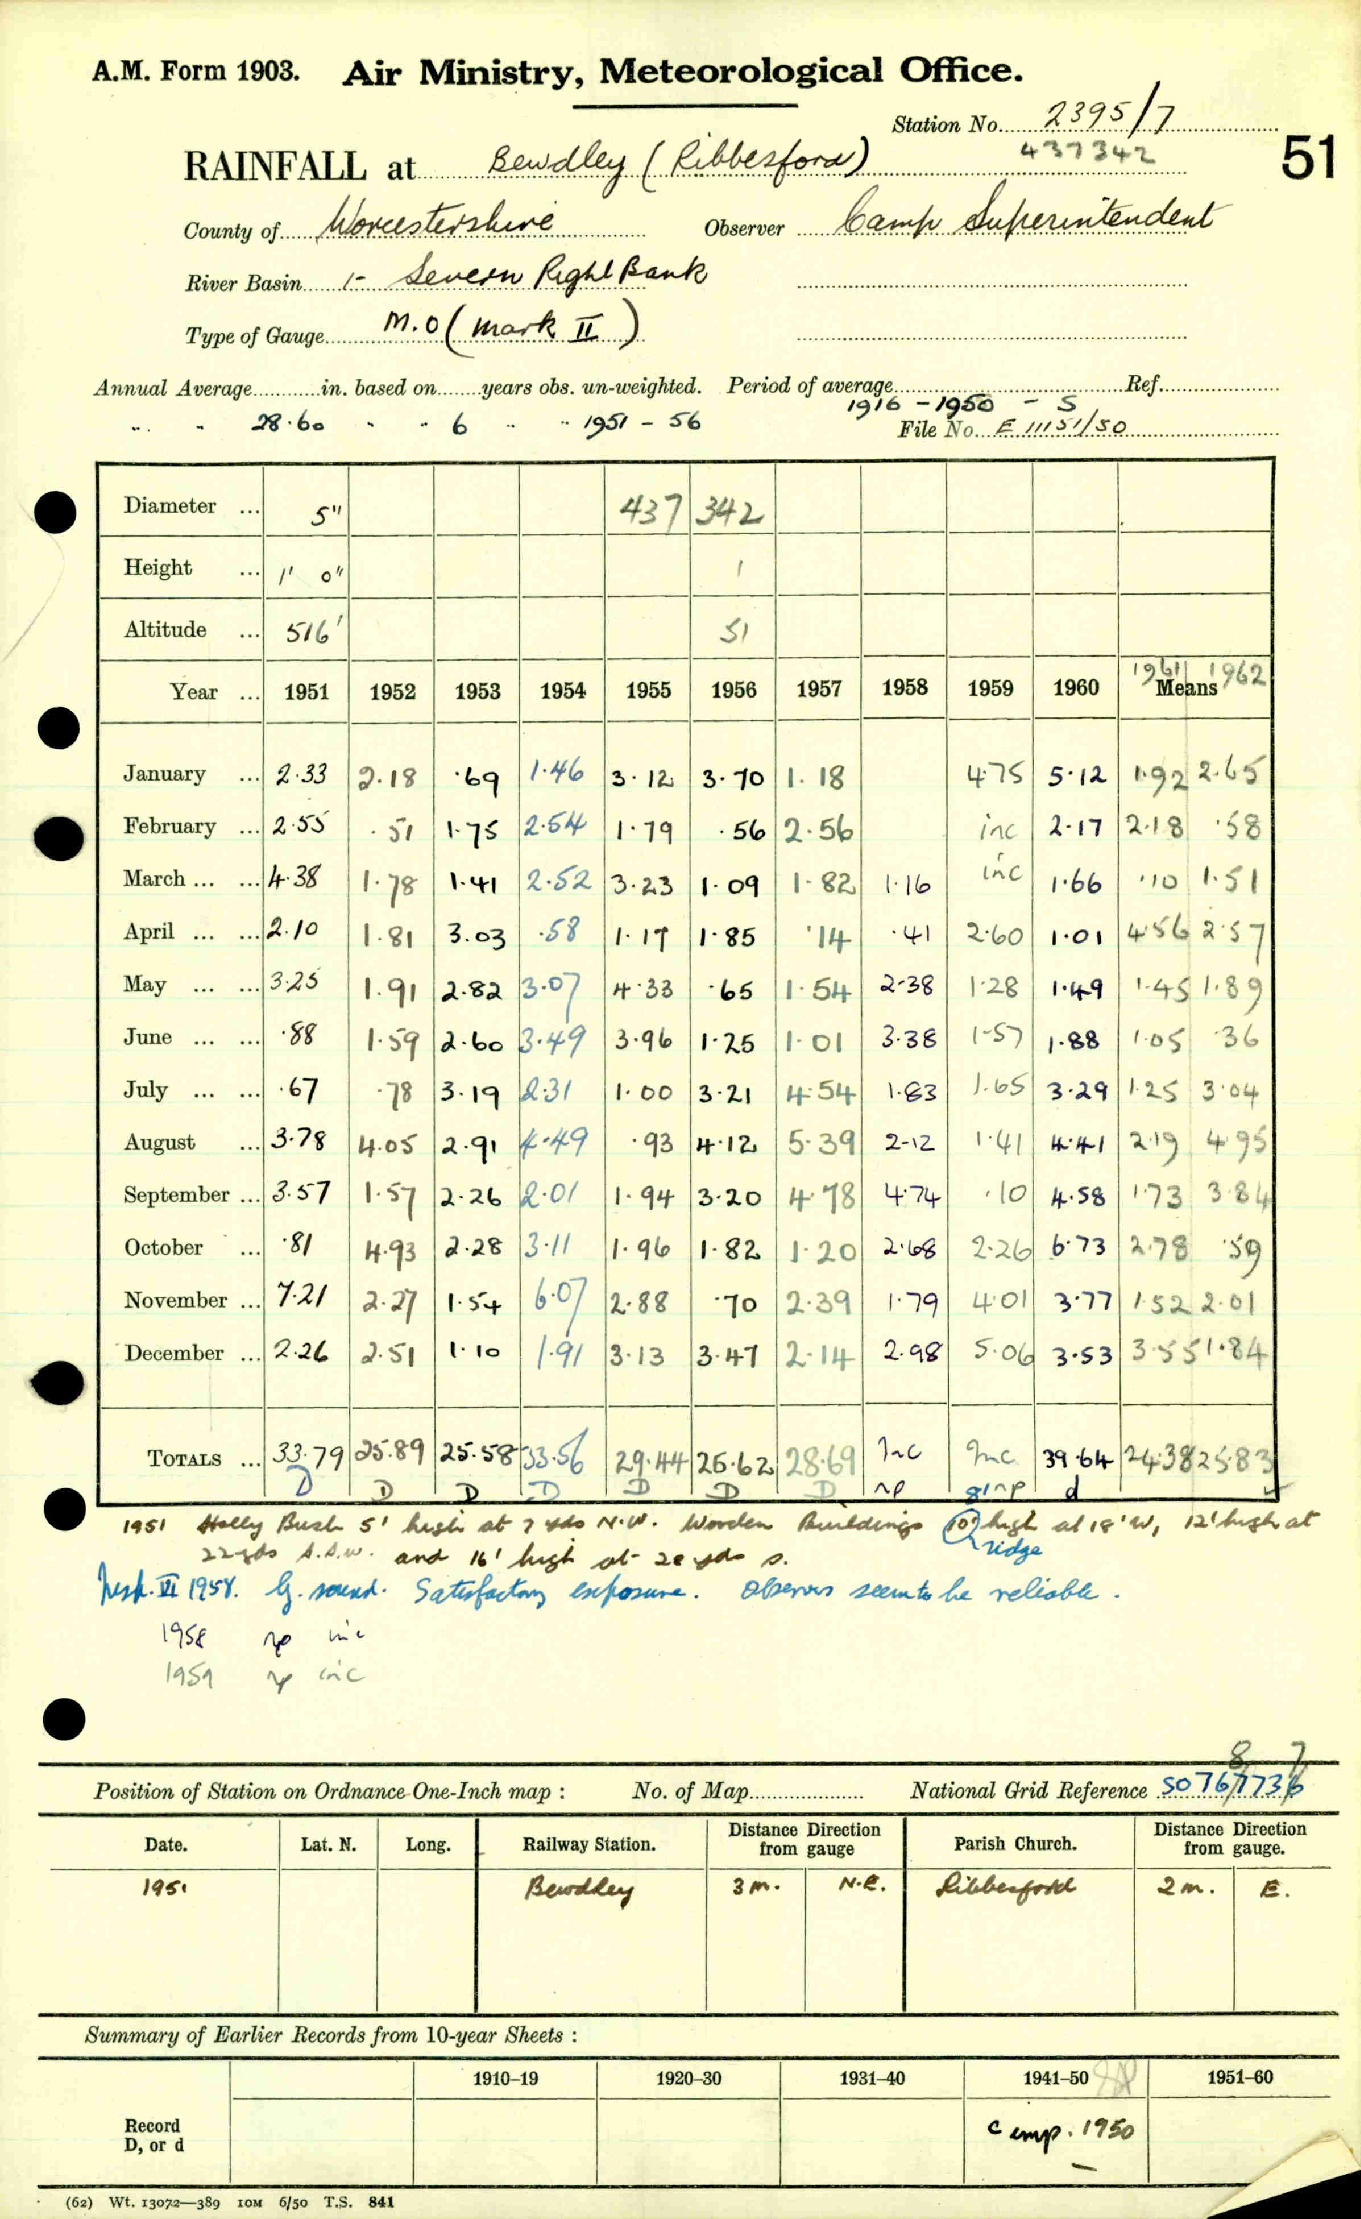 A.M. Form 1903. Air Ministry, Meteorological Office.
Station No. 2395/7
437342
51
RAINFALL at Bewdley (Ribbesford)
County of Worcestershire Observer Camp Superintendent
River Basin 1- Severn Right Bank
Type of Gauge M.O (Mark II)
Annual Average in. based on years obs. un-weighted. Period of average Ref.
1916 - 1950 - S
" " 28.60 " " 6 " " 1951 - 56 File No. E 11151/50
Diameter ... 5" 437 342
Height ... 1' 0" 1
Altitude ... 516' 51
Year ... 1951 1952 1953 1954 1955 1956 1957 1958 1959 1960 Means 1961 1962
January ... 2.33 2.18 .69 1.46 3.12 3.70 1.18 4.75 5.12 1.92 2.65
February ... 2.55 .51 1.75 2.54 1.79 .56 2.56 inc 2.17 2.18 .58
March ... ... 4.38 1.78 1.41 2.52 3.23 1.09 1.82 1.16 inc 1.66 .10 1.51
April ... ... 2.10 1.81 3.03 .58 1.17 1.85 .14 .41 2.60 1.01 4.56 2.57
May ... ... 3.25 1.91 2.82 3.07 4.33 .65 1.54 2.38 1.28 1.49 1.45 1.89
June ... ... .88 1.59 2.60 3.49 3.96 1.25 1.01 3.38 1.57 1.88 1.05 .36
July ... ... .67 .78 3.19 2.31 1.00 3.21 4.54 1.83 1.65 3.29 1.25 3.04
August ... 3.78 4.05 2.91 4.49 .93 4.12 5.39 2.12 1.41 4.41 2.19 4.95
September ... 3.57 1.57 2.26 2.01 1.94 3.20 4.78 4.74 .10 4.58 1.73 3.84
October ... .81 4.93 2.28 3.11 1.96 1.82 1.20 2.68 2.26 6.73 2.78 .59
November ... 7.21 2.27 1.54 6.07 2.88 .70 2.39 1.79 4.01 3.77 1.52 2.01
December ... 2.26 2.51 1.10 1.91 3.13 3.47 2.14 2.98 5.06 3.53 3.55 1.84
TOTALS ... 33.79 25.89 25.58 33.56 29.44 25.62 28.69 Inc Inc 39.64 24.38 25.83
D D D D D D D np np d
1951 Holly Bush 5' high at 7 yds N.W. Wooden Buildings 10' high at 18' W, 12' high at
ridge
22 yds S.S.W. and 16' high at 28 yds S.
Insp. VI 1958. G. sound. Satisfactory exposure. Observers seem to be reliable.
1958 np inc
1959 np inc
8 7
Position of Station on Ordnance One-Inch map : No. of Map National Grid Reference SO 767736
Date. Lat. N. Long. Railway Station. Distance Direction from gauge Parish Church. Distance Direction from gauge.
1951 Bewdley 3 m. N.E. Ribbesford 2 m. E.
Summary of Earlier Records from 10-year Sheets :
1910–19 1920–30 1931–40 1941–50 1951–60
Record
D, or d
C imp. 1950
(62) Wt. 13072—389 10M 6/50 T.S. 841